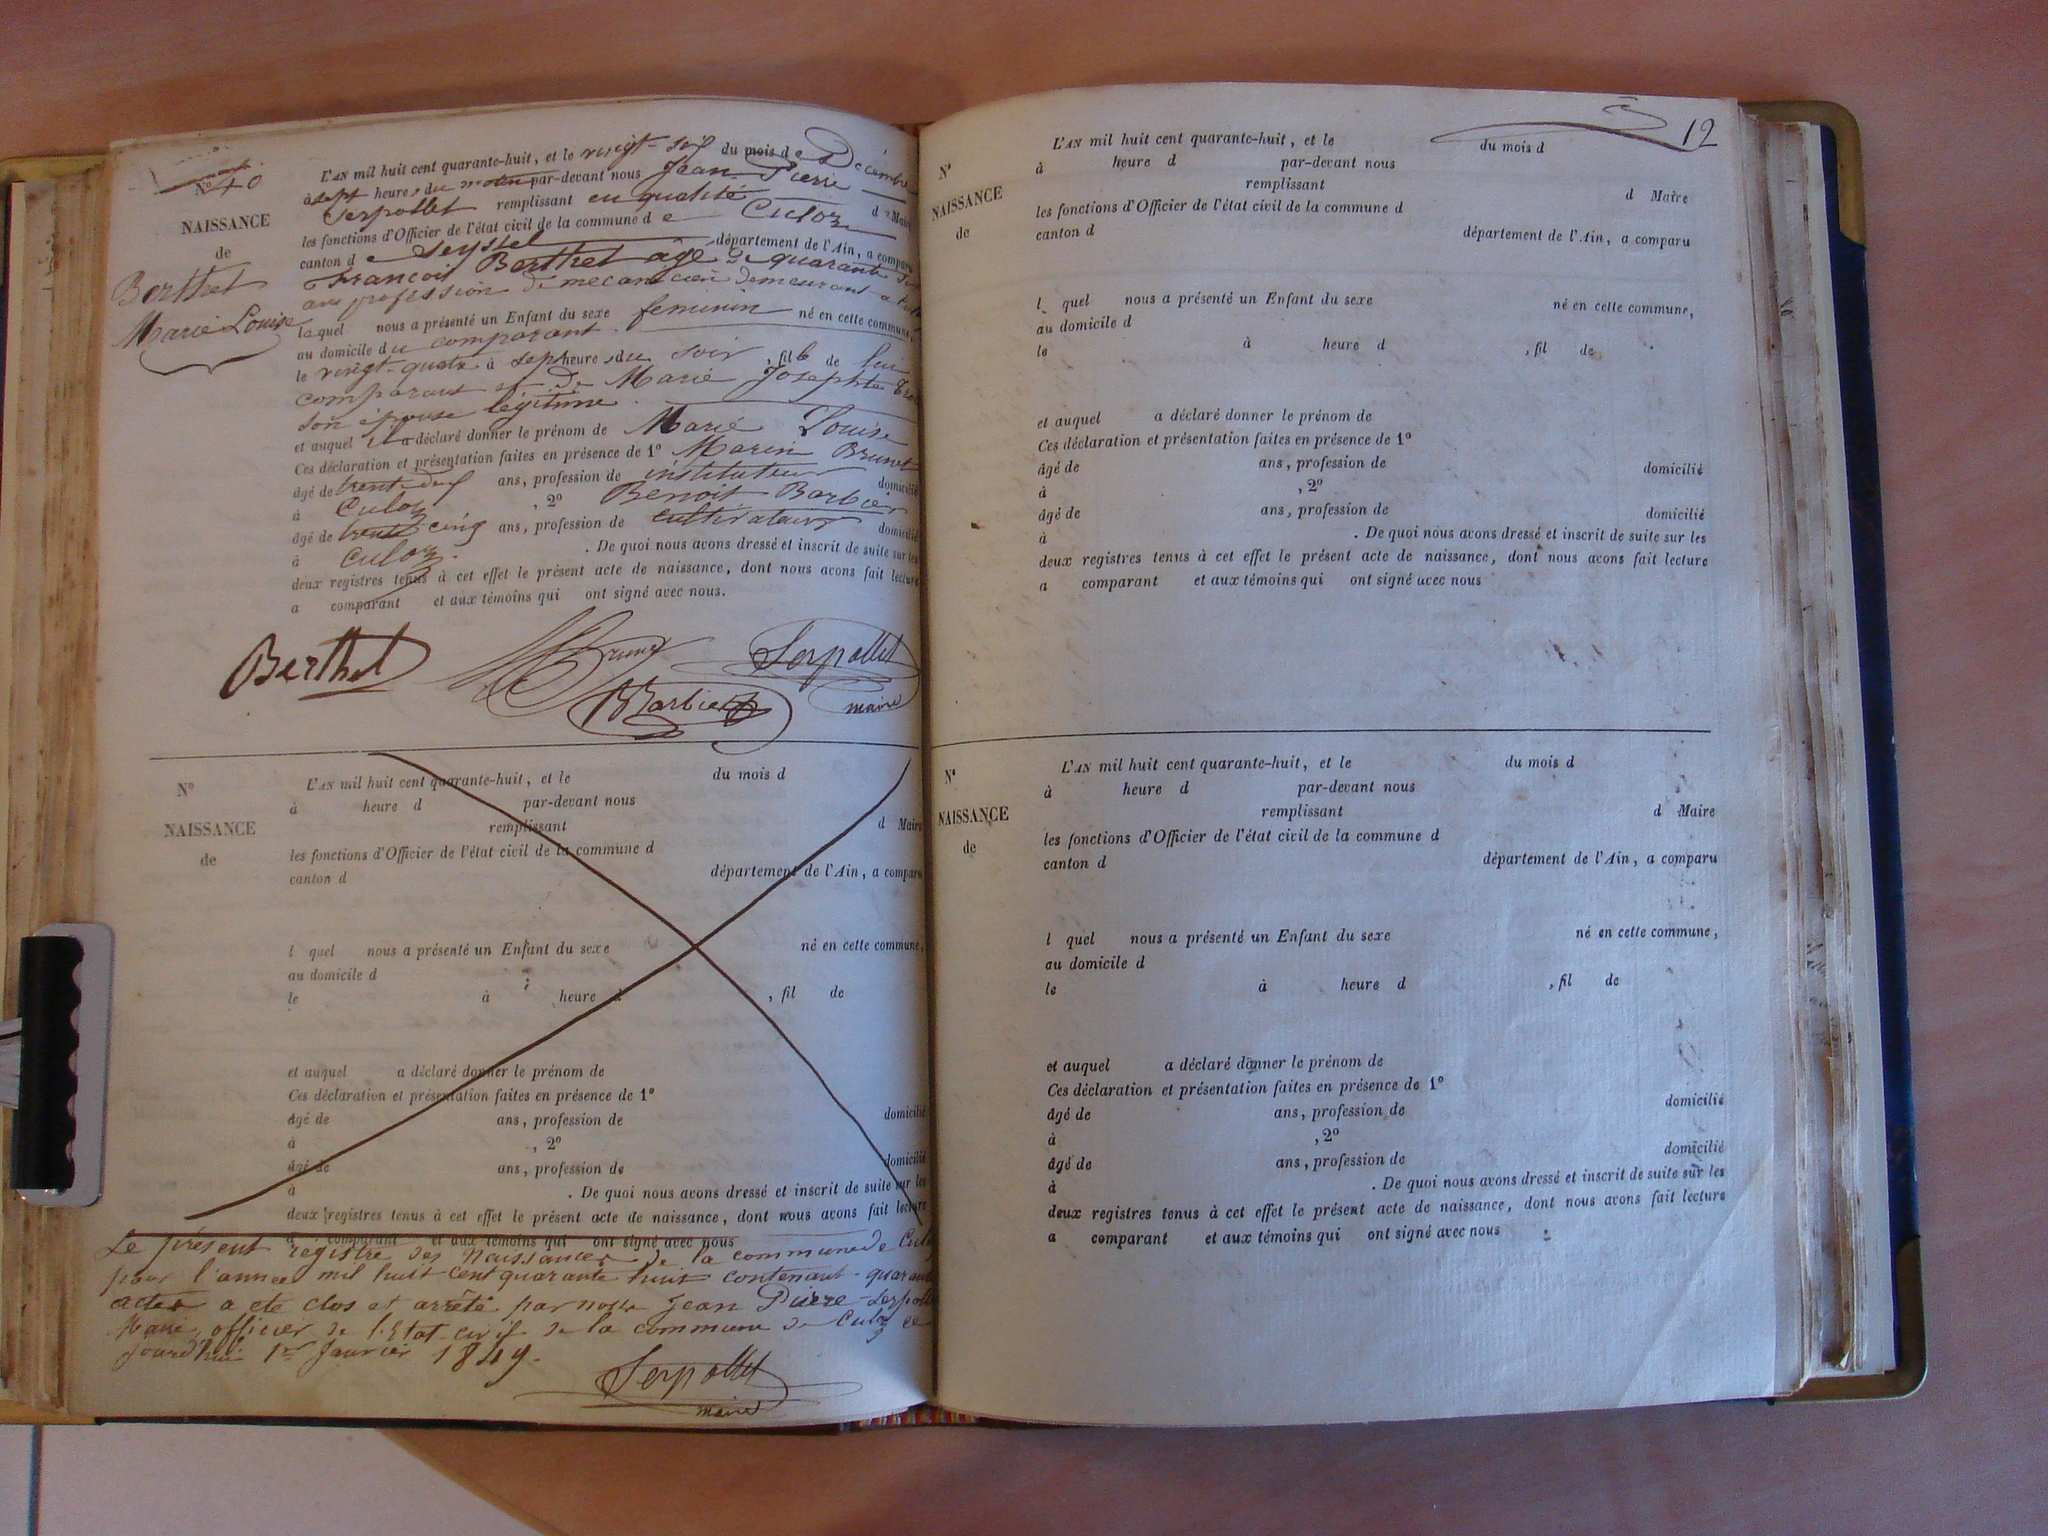 N° 40
NAISSANCE
de
Berthet
Marie Louise
L'AN mil huit cent quarante-huit, et le vingt-sept du mois de Décembre
à sept heures du matin par-devant nous Jean Pierre
Serpollet remplissant en qualité de Maire
les fonctions d'Officier de l'état civil de la commune de Culoz
canton de Seyssel département de l'Ain, a comparu
François Berthet âgé de quarante
ans profession de mecanicien demeurant a
lequel nous a présenté un Enfant du sexe feminin né en cette commune,
au domicile du comparant
le vingt-quatre à sept heures du soir, fille de lui
comparant et de Marie Josephte
son épouse légitime.
et auquel il a déclaré donner le prénom de Marie Louise
Ces déclaration et présentation faites en présence de 1° Marin Brunet
âgé de trente neuf ans, profession de instituteur domicilié
à Culoz, 2° Benoit Barbier
âgé de trente cinq ans, profession de cultivateur domicilié
à Culoz. De quoi nous avons dressé et inscrit de suite sur les
deux registres tenus à cet effet le présent acte de naissance, dont nous avons fait lecture
a comparant et aux témoins qui ont signé avec nous.
Berthet Brunet Serpollet
B Barbier maire
N°
NAISSANCE
de
L'AN mil huit cent quarante-huit, et le du mois d
à heure d par-devant nous
remplissant d Maire
les fonctions d'Officier de l'état civil de la commune d
canton d département de l'Ain, a comparu
l quel nous a présenté un Enfant du sexe né en cette commune,
au domicile d
le à heure d , fil de
et auquel a déclaré donner le prénom de
Ces déclaration et présentation faites en présence de 1°
âgé de ans, profession de domicilié
à , 2°
âgé de ans, profession de domicilié
à . De quoi nous avons dressé et inscrit de suite sur les
deux registres tenus à cet effet le présent acte de naissance, dont nous avons fait lecture
a comparant et aux témoins qui ont signé avec nous
Le présent registre des Naissances de la commune de Culoz
pour l'annee mil huit cent quarante huit contenant quarante
actes a été clos et arrêté par nous Jean Pierre Serpollet
Maire officier de l'Etat civil de la commune de Culoz ce
jourd'hui 1er Janvier 1849.
Serpollet
maire
12
N°
NAISSANCE
de
L'AN mil huit cent quarante-huit, et le du mois d
à heure d par-devant nous
remplissant d Maire
les fonctions d'Officier de l'état civil de la commune d
canton d département de l'Ain, a comparu
l quel nous a présenté un Enfant du sexe né en cette commune,
au domicile d
le à heure d , fil de
et auquel a déclaré donner le prénom de
Ces déclaration et présentation faites en présence de 1°
âgé de ans, profession de domicilié
à , 2°
âgé de ans, profession de domicilié
à . De quoi nous avons dressé et inscrit de suite sur les
deux registres tenus à cet effet le présent acte de naissance, dont nous avons fait lecture
a comparant et aux témoins qui ont signé avec nous
N°
NAISSANCE
de
L'AN mil huit cent quarante-huit, et le du mois d
à heure d par-devant nous
remplissant d Maire
les fonctions d'Officier de l'état civil de la commune d
canton d département de l'Ain, a comparu
l quel nous a présenté un Enfant du sexe né en cette commune,
au domicile d
le à heure d , fil de
et auquel a déclaré donner le prénom de
Ces déclaration et présentation faites en présence de 1°
âgé de ans, profession de domicilié
à , 2°
âgé de ans, profession de domicilié
à . De quoi nous avons dressé et inscrit de suite sur les
deux registres tenus à cet effet le présent acte de naissance, dont nous avons fait lecture
a comparant et aux témoins qui ont signé avec nous